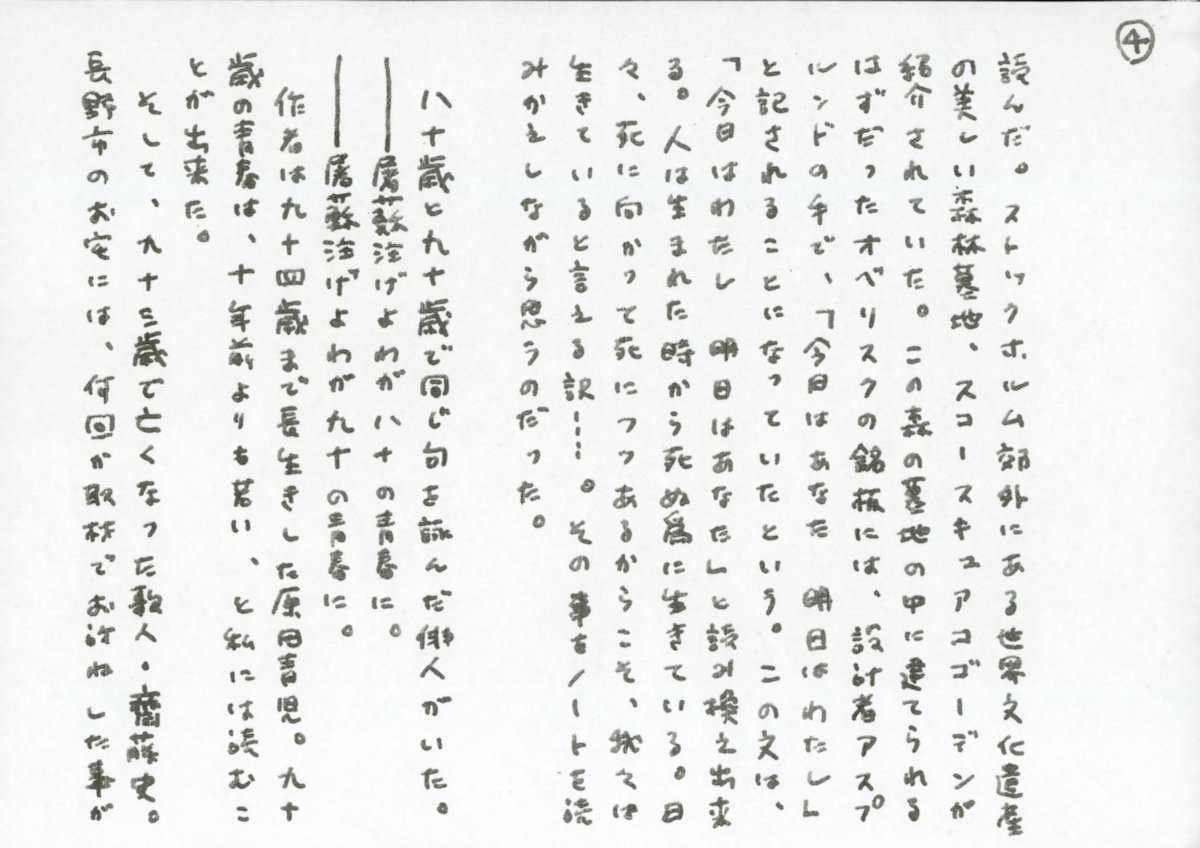 ④
読んだ。ストックホルム郊外にある世界文化遺産
の美しい森林墓地、スコースキュアコゴーデンが
紹介されていた。この森の墓地の中に建てられる
はずだったオベリスクの銘板には、設計者アスプ
ルンドの手で、「今日はあなた 明日はわたし」
と記されることになっていたという。この文は、
「今日はわたし 明日はあなた」と読み換え出来
る。人は生まれた時から死ぬ為に生きている。日
々、死に向かって死につつあるからこそ、我々は
生きていると言える訳……。その事をノートを読
みかえしながら思うのだった。
八十歳と九十歳で同じ句を詠んだ俳人がいた。
――屠蘇注げよわが八十の青春に。
――屠蘇注げよわが九十の青春に。
作者は九十四歳まで長生きした原田青児。九十
歳の青春は、十年前よりも若い、と私には読むこ
とが出来た。
そして、九十三歳で亡くなった歌人・齋藤史。
長野市のお宅には、何回か取材でお訪ねした事が